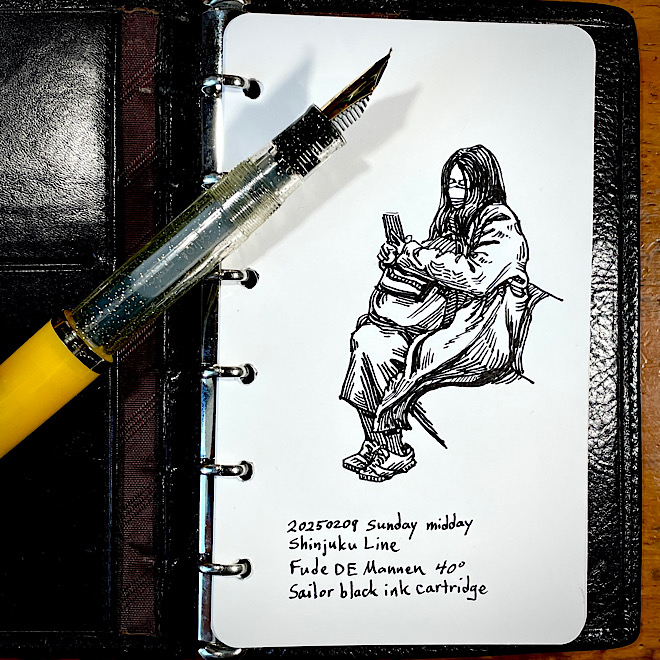 20250209 Sunday midday
Shinjuku Line
Fude DE Mannen 40°
Sailor black ink cartridge